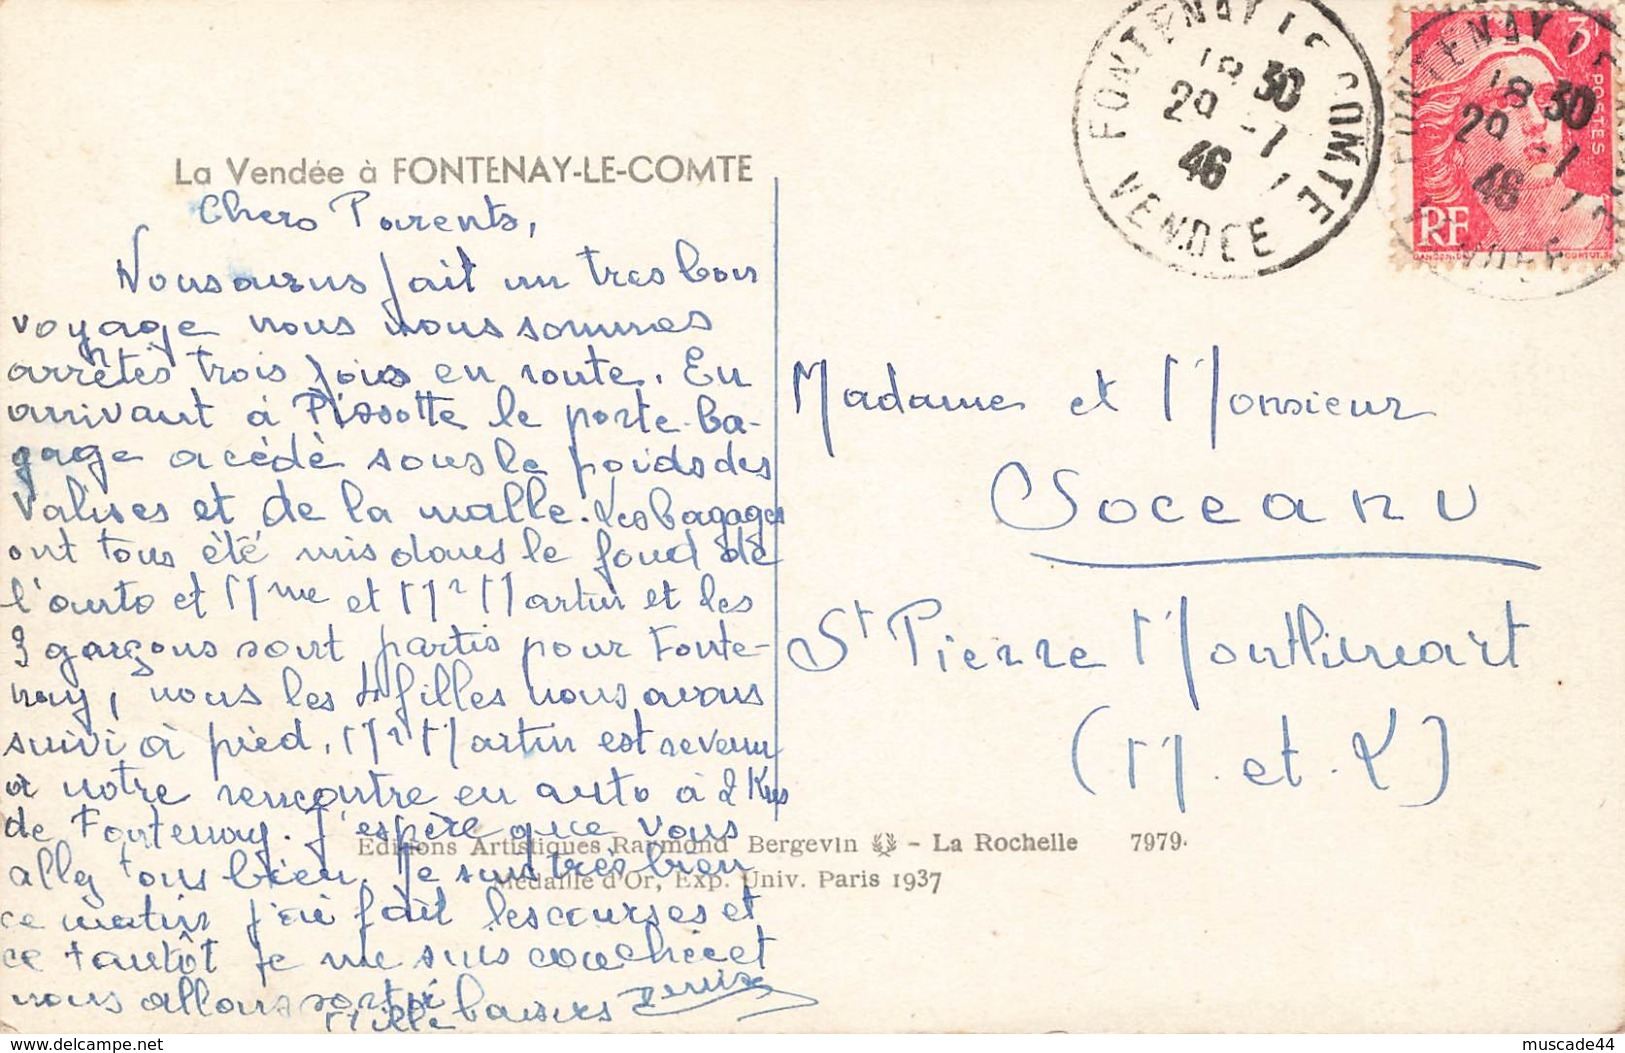 FONTENAY LE COMTE
18 30
29 -7
46
VENDEE
3F
POSTES
RF
La Vendée à FONTENAY-LE-COMTE
Chers Parents,
Nous avons fait un tres bon
voyage nous nous sommes
arrêtés trois fois en route. En
arrivant à Pissotte le porte-ba-
gage a cédè sous le poids des
valises et de la malle. Les bagages
ont tous été mis dans le fond de
l'auto et Mme et Mr Martin et les
3 garçons sont partis pour Fonte-
nay, nous les 4 filles nous avons
suivi à pied. Mr Martin est revenu
à notre rencontre en auto à 2 Kms
de Fontenay. J'espère que vous
allez tous bien. Je suis très bien
ce matin j'ai fait les courses et
ce tantôt je me suis couchée et
nous allons sortir
Mille baisers
Madame et Monsieur
Soceanu
St Pierre Montlimart
(M. et L)
Editions Artistiques Raymond Bergevin - La Rochelle 7979.
Médaille d'Or, Exp. Univ. Paris 1937
https://www.delcampe.net
muscade44